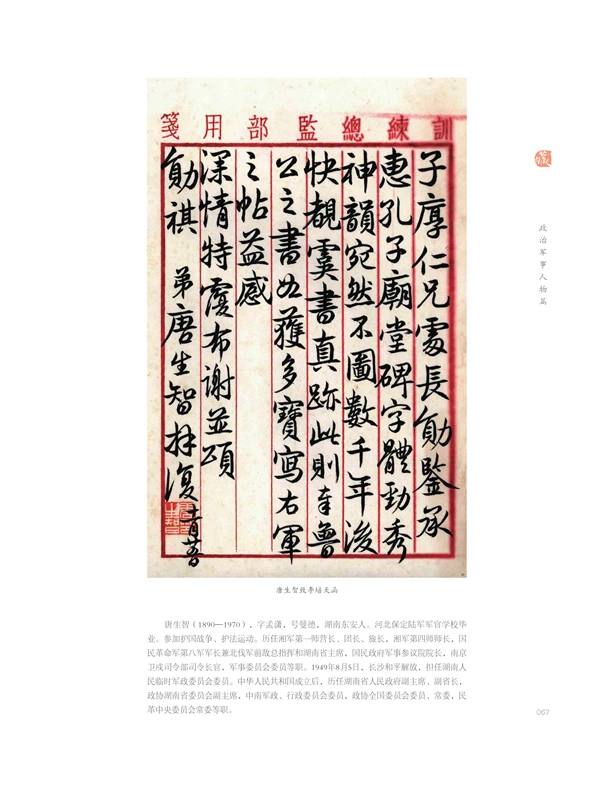 訓練總監部用箋
子厚仁兄處長勛鑒承
惠孔子廟堂碑字體勁秀
神韻宛然不圖數千年後
快覩虞書真跡此則奉魯
公之書如獲多寶寫右軍
之帖益感
深情特覆布謝並頌
勛祺 弟唐生智拜復
政治军事人物篇
唐生智致李培天函
唐生智（1890—1970），字孟潇，号曼德，湖南东安人。河北保定陆军军官学校毕
业。参加护国战争、护法运动。历任湘军第一师营长、团长、旅长，湘军第四师师长，国
民革命军第八军军长兼北伐军前敌总指挥和湖南省主席，国民政府军事参议院院长，南京
卫戍司令部司令长官，军事委员会委员等职。1949年8月5日，长沙和平解放，担任湖南人
民临时军政委员会委员。中华人民共和国成立后，历任湖南省人民政府副主席、副省长，
政协湖南省委员会副主席，中南军政、行政委员会委员，政协全国委员会委员、常委，民
革中央委员会常委等职。
067